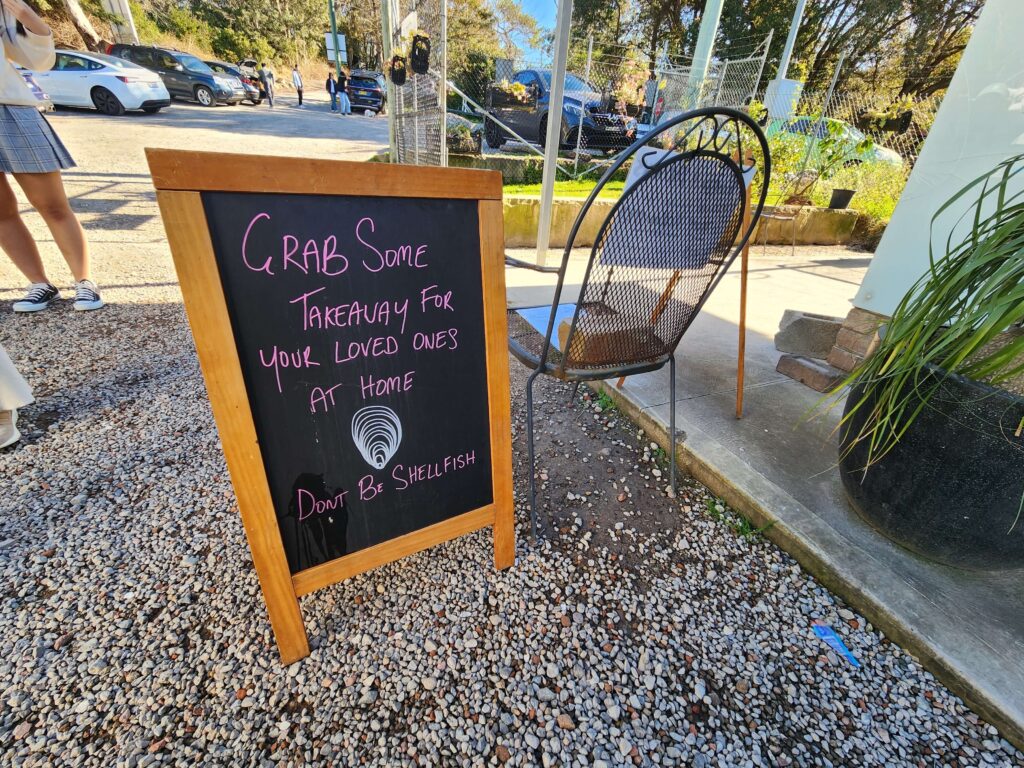 GRAB SOME
TAKEAWAY FOR
YOUR LOVED ONES
AT HOME
DONT BE SHELLFISH